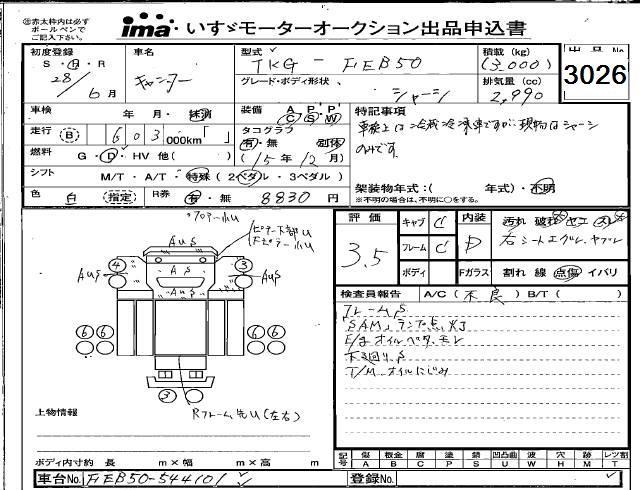 ㊟赤太枠内は必ず
ボールペンで
ご記入下さい。
ima いすゞモーターオークション出品申込書
初度登録
S・H・R
28/6月
車名
キャンター
型式
TKG - FEB50
グレード・ボディ形状
シャーシ
積載 (kg)
(3,000)
排気量 (cc)
2,990
出品No.
3026
車検 年 月・抹消
装備 A C P S P W
特記事項
車検上は冷蔵冷凍車ですが、現物はシャーシ
のみです。
走行 (B) 603 000km「 」
タコグラフ
有・無 別体
(15年12月)
燃料 G・D・HV 他( )
シフト M/T・A/T・特殊 (2ペダル・3ペダル)
架装物年式:( 年式)・不明
※不明の場合は、不明に○をする。
色 白 (指定) R券 有・無 8830円
評価
3.5
キャブ C
フレーム C
ボディ
内装 D
汚れ 破れ
右シートエグレ、ヤブレ
Fガラス 割れ 線 点傷 イバリ
検査員報告 A/C(不良) B/T( )
フレームS
「SAM」ランプ点灯
E/gオイルベタ、モレ
下廻りS
T/M オイルにじみ
AUS
4
AUS
AS
3
AUS
AUS
6 6
6 6
3
Rフレーム先U(左右)
上物情報
ボディ内寸約 長 m×幅 m×高 m
記号 傷 板金 腐 塗 錆 凹凸曲 波 穴 跡 レツ割
A B C P S U W H M T
車台No. FEB50-544101
登録No.